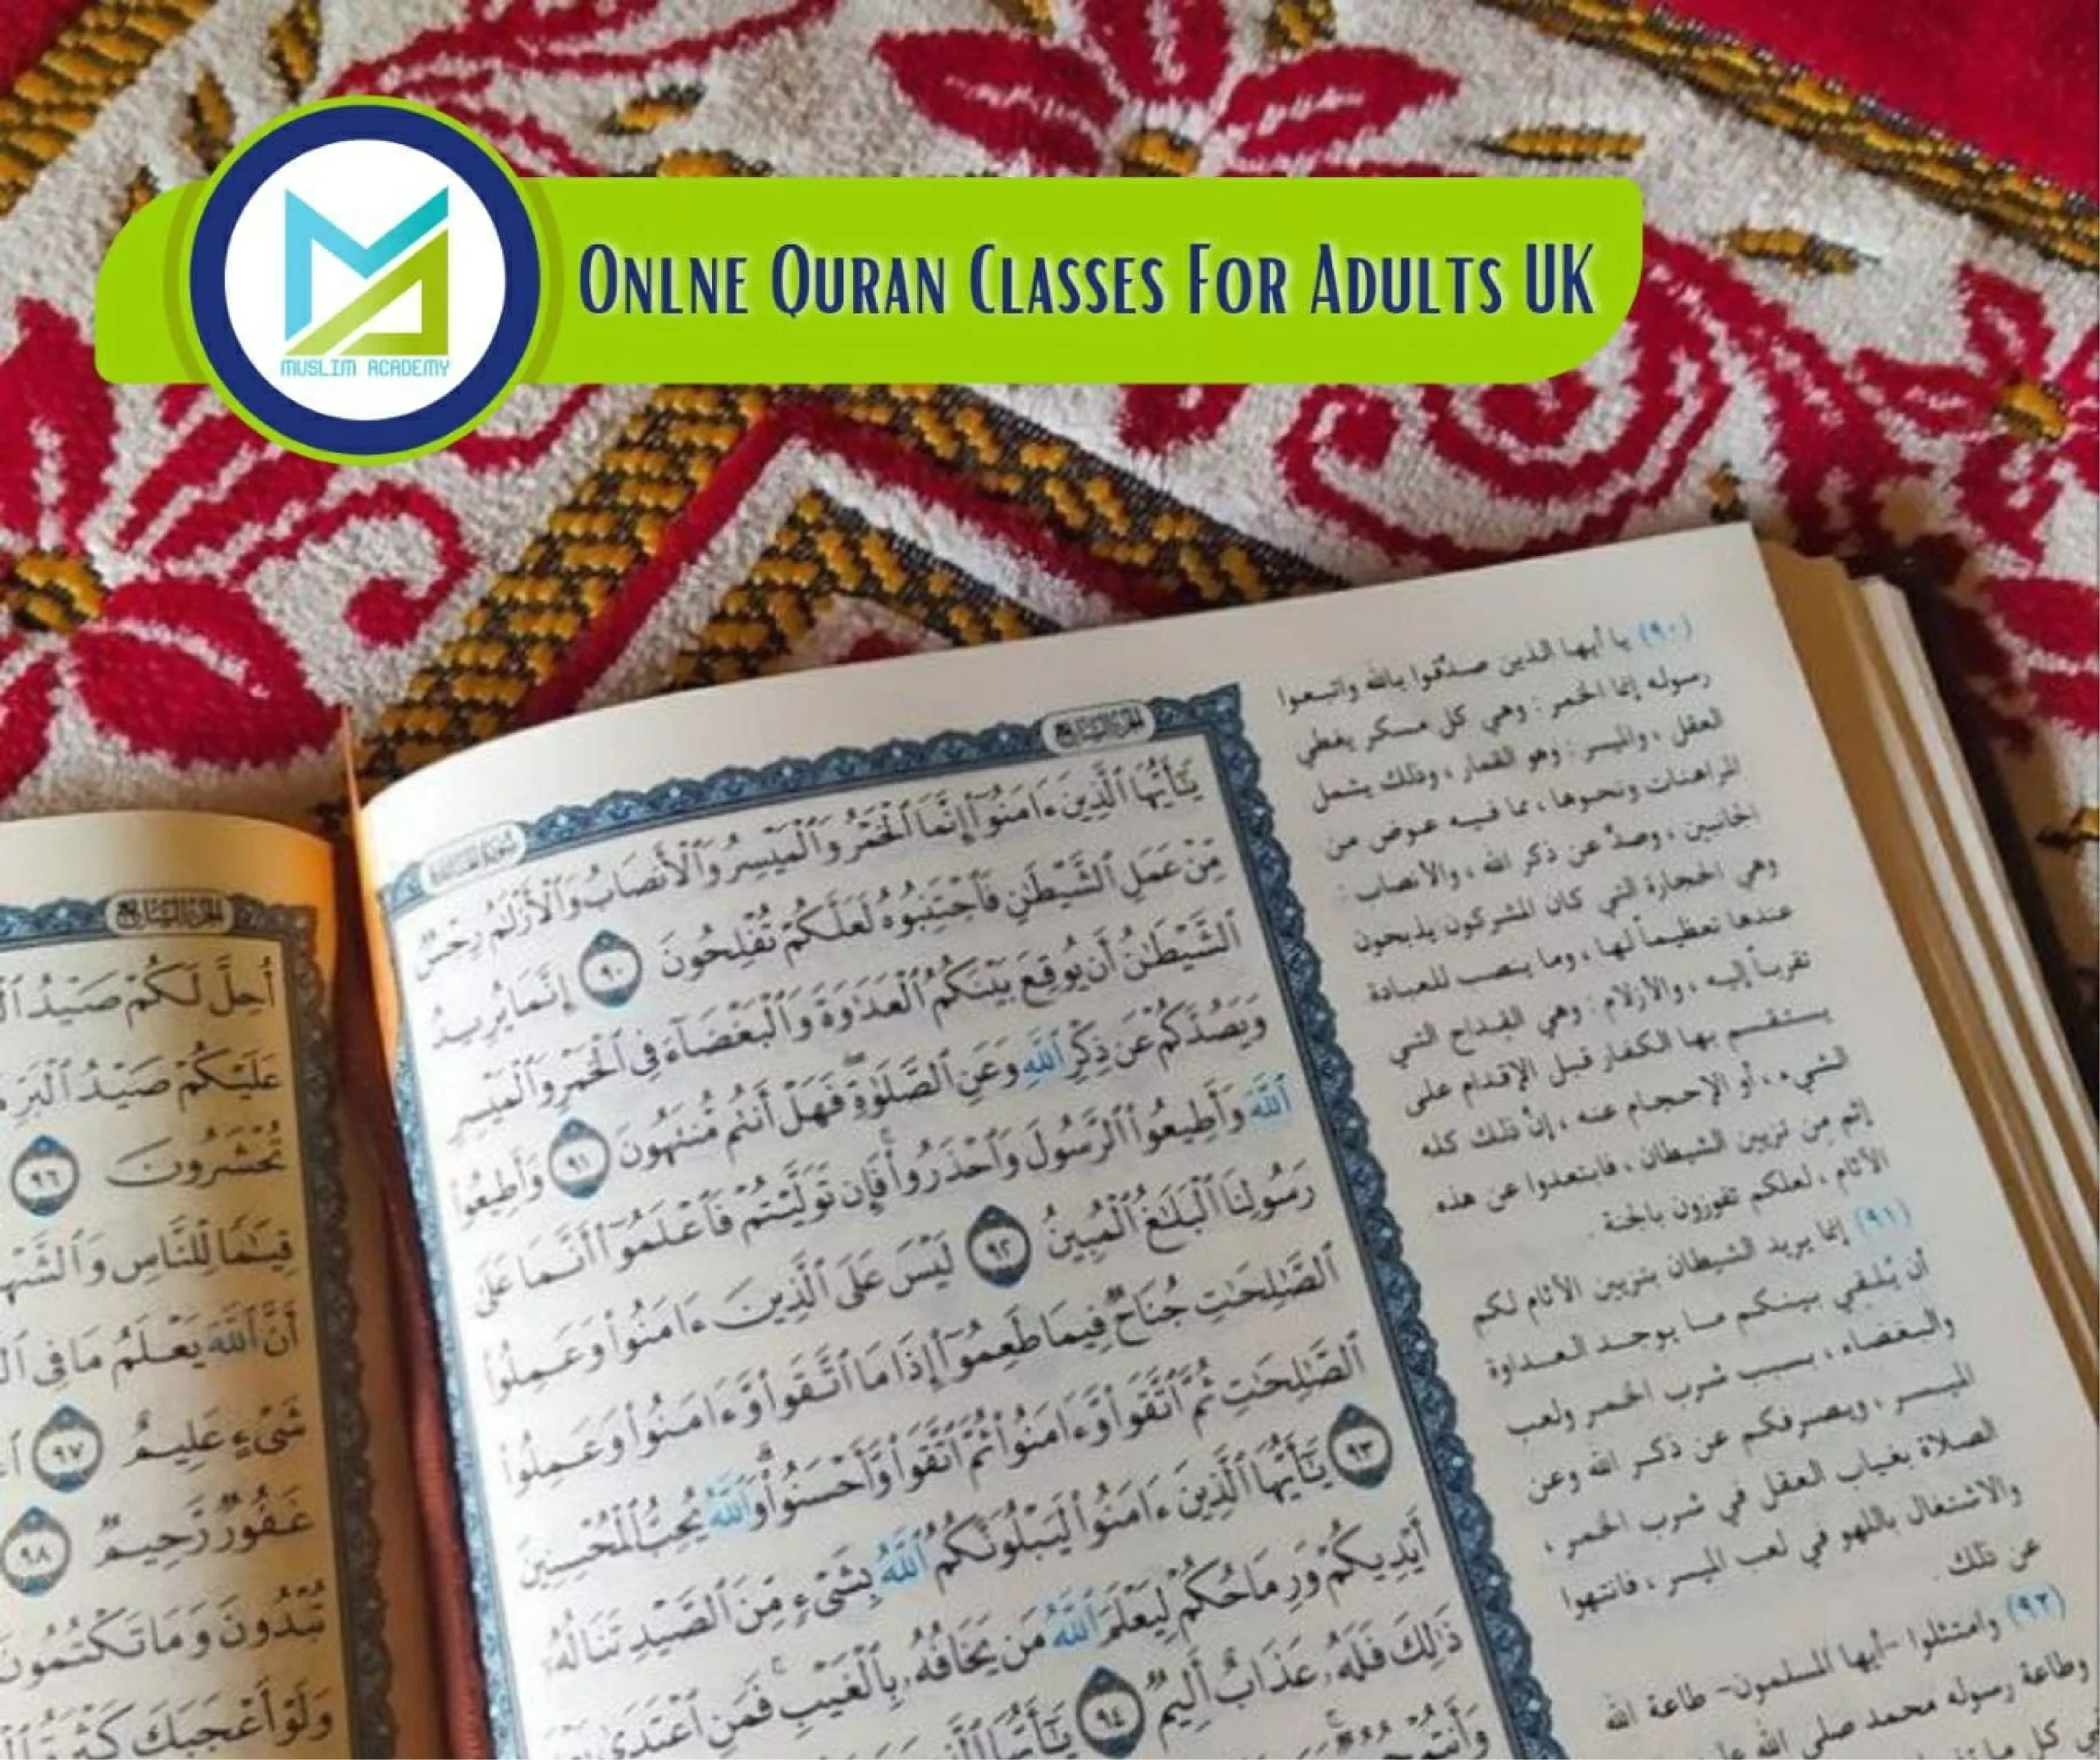 MUSLIM ACADEMY
ONLNE QURAN CLASSES FOR ADULTS UK
يَٰٓأَيُّهَا ٱلَّذِينَ ءَامَنُوٓا۟ إِنَّمَا ٱلْخَمْرُ وَٱلْمَيْسِرُ وَٱلْأَنصَابُ وَٱلْأَزْلَٰمُ رِجْسٌ
مِّنْ عَمَلِ ٱلشَّيْطَٰنِ فَٱجْتَنِبُوهُ لَعَلَّكُمْ تُفْلِحُونَ ٩٠ إِنَّمَا يُرِيدُ
ٱلشَّيْطَٰنُ أَن يُوقِعَ بَيْنَكُمُ ٱلْعَدَٰوَةَ وَٱلْبَغْضَآءَ فِى ٱلْخَمْرِ وَٱلْمَيْسِرِ
وَيَصُدَّكُمْ عَن ذِكْرِ ٱللَّهِ وَعَنِ ٱلصَّلَوٰةِ فَهَلْ أَنتُم مُّنتَهُونَ ٩١ وَأَطِيعُوا۟
ٱللَّهَ وَأَطِيعُوا۟ ٱلرَّسُولَ وَٱحْذَرُوا۟ فَإِن تَوَلَّيْتُمْ فَٱعْلَمُوٓا۟ أَنَّمَا عَلَىٰ
رَسُولِنَا ٱلْبَلَٰغُ ٱلْمُبِينُ ٩٢ لَيْسَ عَلَى ٱلَّذِينَ ءَامَنُوا۟ وَعَمِلُوا۟
ٱلصَّٰلِحَٰتِ جُنَاحٌ فِيمَا طَعِمُوٓا۟ إِذَا مَا ٱتَّقَوا۟ وَّءَامَنُوا۟ وَعَمِلُوا۟
ٱلصَّٰلِحَٰتِ ثُمَّ ٱتَّقَوا۟ وَّءَامَنُوا۟ ثُمَّ ٱتَّقَوا۟ وَّأَحْسَنُوا۟ وَٱللَّهُ يُحِبُّ ٱلْمُحْسِنِينَ
٩٣ يَٰٓأَيُّهَا ٱلَّذِينَ ءَامَنُوا۟ لَيَبْلُوَنَّكُمُ ٱللَّهُ بِشَىْءٍ مِّنَ ٱلصَّيْدِ تَنَالُهُۥٓ
أَيْدِيكُمْ وَرِمَاحُكُمْ لِيَعْلَمَ ٱللَّهُ مَن يَخَافُهُۥ بِٱلْغَيْبِ فَمَنِ ٱعْتَدَىٰ بَعْدَ
ذَٰلِكَ فَلَهُۥ عَذَابٌ أَلِيمٌ ٩٤ يَٰٓأَيُّهَا
وَأَنتُمْ
(٩٠) يا أيها الذين صدَّقوا بالله واتبعوا
رسوله إنما الخمر: وهي كل مسكر يغطي
العقل، والميسر: وهو القمار، وذلك يشمل
المراهنات ونحوها، مما فيه عوض من
الجانبين، وصدٌّ عن ذكر الله، والأنصاب:
وهي الحجارة التي كان المشركون يذبحون
عندها تعظيماً لها، وما ينصب للعبادة
تقرباً إليه، والأزلام: وهي القداح التي
يستقسم بها الكفار قبل الإقدام على
الشيء، أو الإحجام عنه، إنَّ ذلك كله
إثم مِن تزيين الشيطان، فابتعدوا عن هذه
الآثام، لعلكم تفوزون بالجنة.
(٩١) إنما يريد الشيطان بتزيين الآثام لكم
أن يُلقي بينكم ما يوجد العداوة
والبغضاء، بسبب شرب الخمر ولعب
الميسر، ويصرفكم عن ذكر الله وعن
الصلاة بغياب العقل في شرب الخمر،
والاشتغال باللهو في لعب الميسر، فانتهوا
عن ذلك.
(٩٢) وامتثلوا -أيها المسلمون- طاعة الله
وطاعة رسوله محمد صلى الله
في كل ما
أُحِلَّ لَكُمْ صَيْدُ
عَلَيْكُمْ صَيْدُ ٱلْبَرِّ
تُحْشَرُونَ ٩٦
قِيَٰمًا لِّلنَّاسِ وَٱلشَّهْ
أَنَّ ٱللَّهَ يَعْلَمُ مَا فِى
شَىْءٍ عَلِيمٌ ٩٧
غَفُورٌ رَّحِيمٌ ٩٨
تُبْدُونَ وَمَا تَكْتُمُونَ
وَلَوْ أَعْجَبَكَ كَثْرَةُ